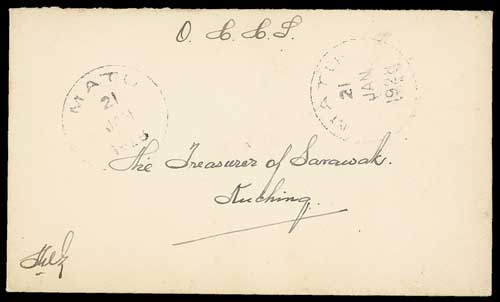 O. H. H. S.
MATU
21
JAN
1928
MATU
21
JAN
1928
The Treasurer of Sarawak.
Kuching.